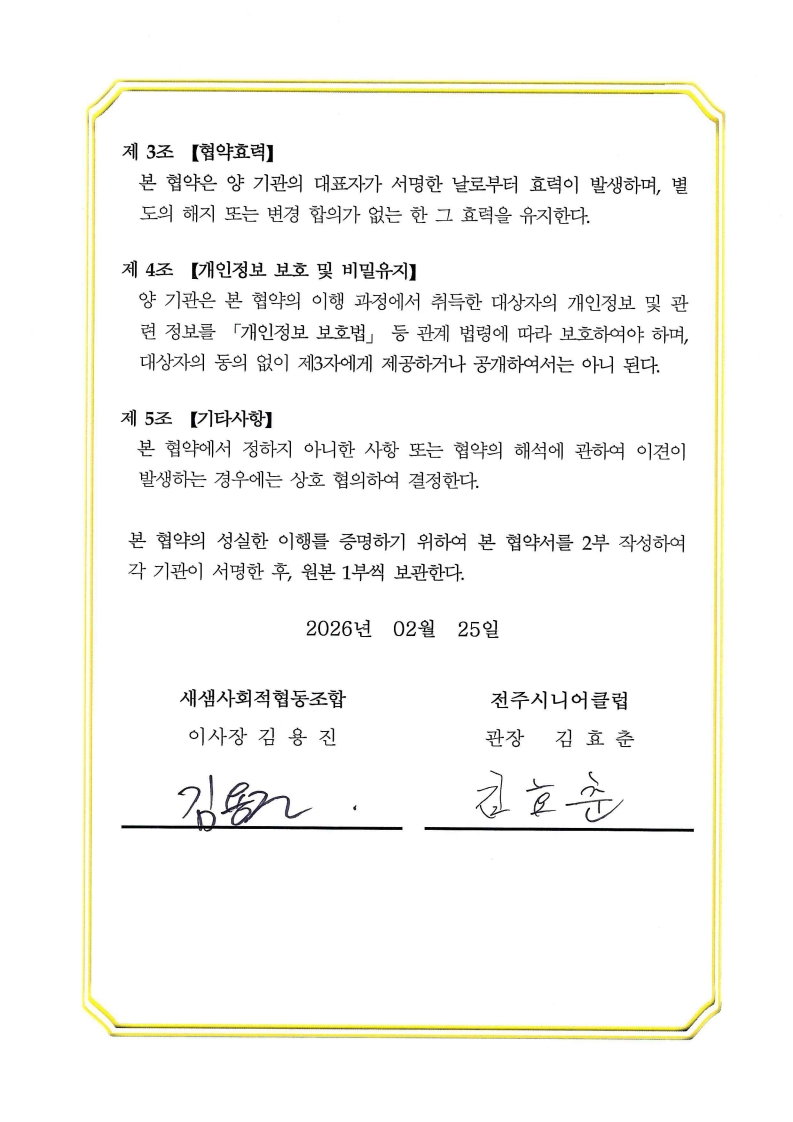 제 3조 【협약효력】
본 협약은 양 기관의 대표자가 서명한 날로부터 효력이 발생하며, 별
도의 해지 또는 변경 합의가 없는 한 그 효력을 유지한다.
제 4조 【개인정보 보호 및 비밀유지】
양 기관은 본 협약의 이행 과정에서 취득한 대상자의 개인정보 및 관
련 정보를 「개인정보 보호법」 등 관계 법령에 따라 보호하여야 하며,
대상자의 동의 없이 제3자에게 제공하거나 공개하여서는 아니 된다.
제 5조 【기타사항】
본 협약에서 정하지 아니한 사항 또는 협약의 해석에 관하여 이견이
발생하는 경우에는 상호 협의하여 결정한다.
본 협약의 성실한 이행를 증명하기 위하여 본 협약서를 2부 작성하여
각 기관이 서명한 후, 원본 1부씩 보관한다.
2026년 02월 25일
새샘사회적협동조합 전주시니어클럽
이사장 김 용 진 관장 김 효 춘
김용진 김효춘